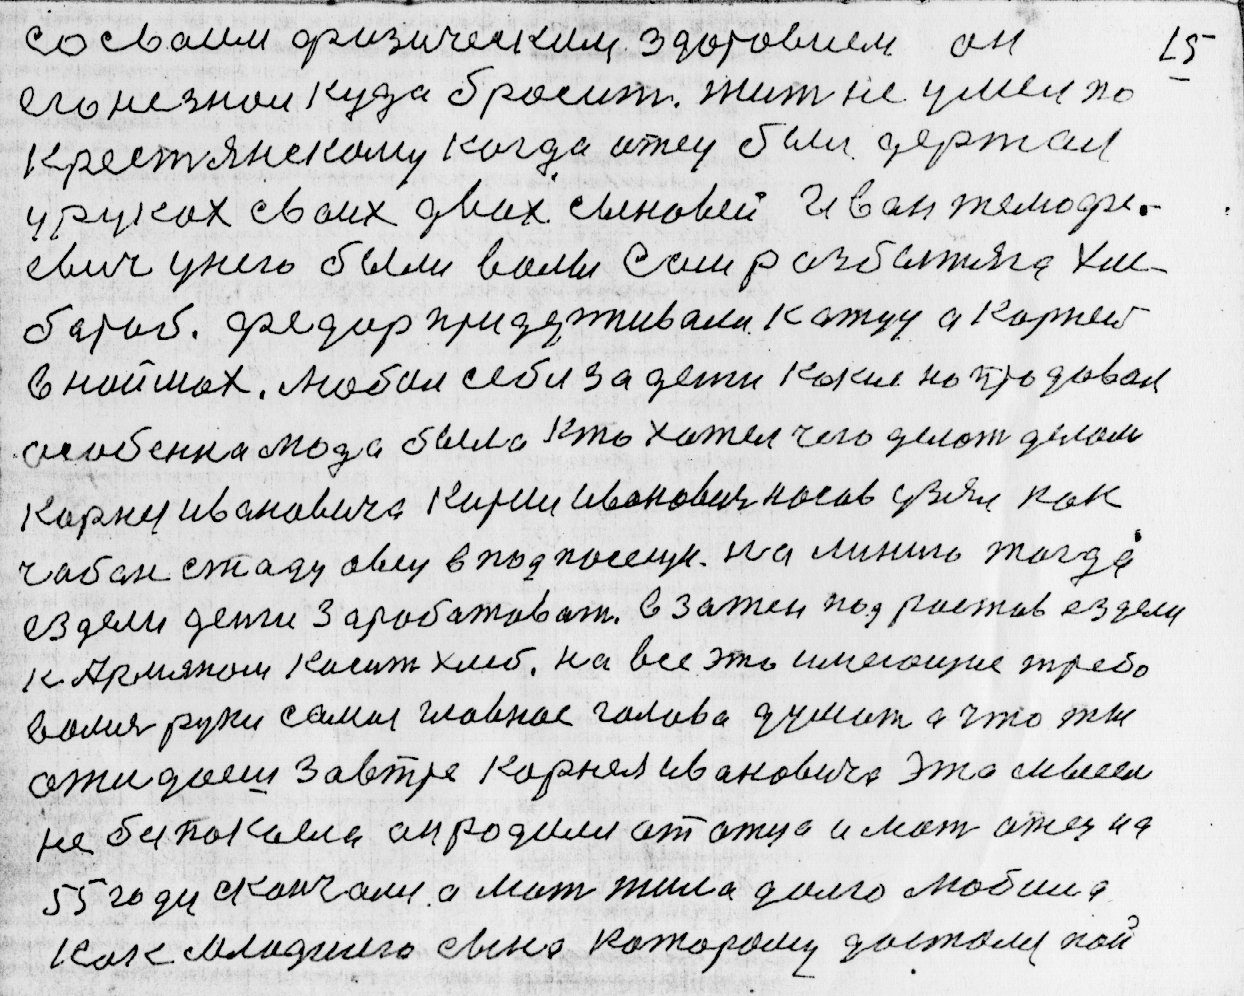 со своим физическим здоровием он 15
его не знал куда бросит. жит не умел по
крестянскому когда отец был держал
у руках своих двох сыновей Иван темофе-
евич у него были волы Сам разбитяга хле-
бароб. федор придерживал кажуу а Корней
в наймах. любил себя за дети какие но продавал
особенна мода была кто хотел чего делат делали
Корнеи ивановича Корнеи иванович носов узял как
чабан стаду овец в под посещик. на линию тогда
ездели денги заработоват. в затем под ростов ездели
к Армянам косит хлеб. на все это имеющие требо
вания руки самое главное голова думат а что ты
ожидаеш завтре Корнея ивановича Эта мысел
не бипокоела он родили от отца и мат отец на
55 году скончали а мат жила долго любила
как младшего сына которому достали пой